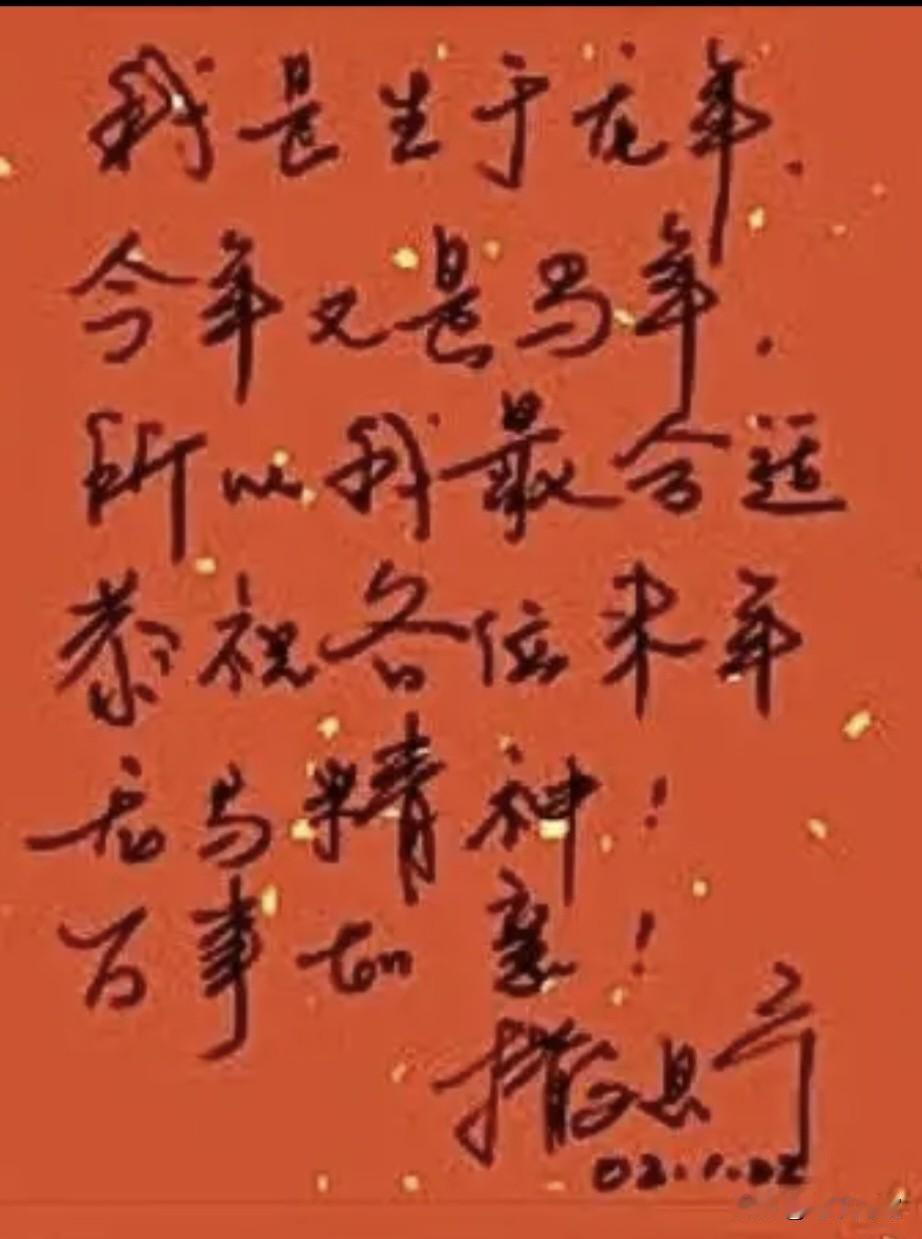 我是生于龙年.
今年又是马年.
所以我最合适
恭祝各位来年
龙马精神!
百事如意!
撒贝宁
02.1.22